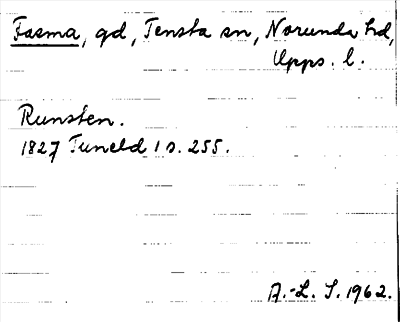 Fasma, gd, Tensta sn, Norunda hd,
Upps. l.
Runsten.
1827 Tuneld 1 s. 255.
A.-L. S. 1962.